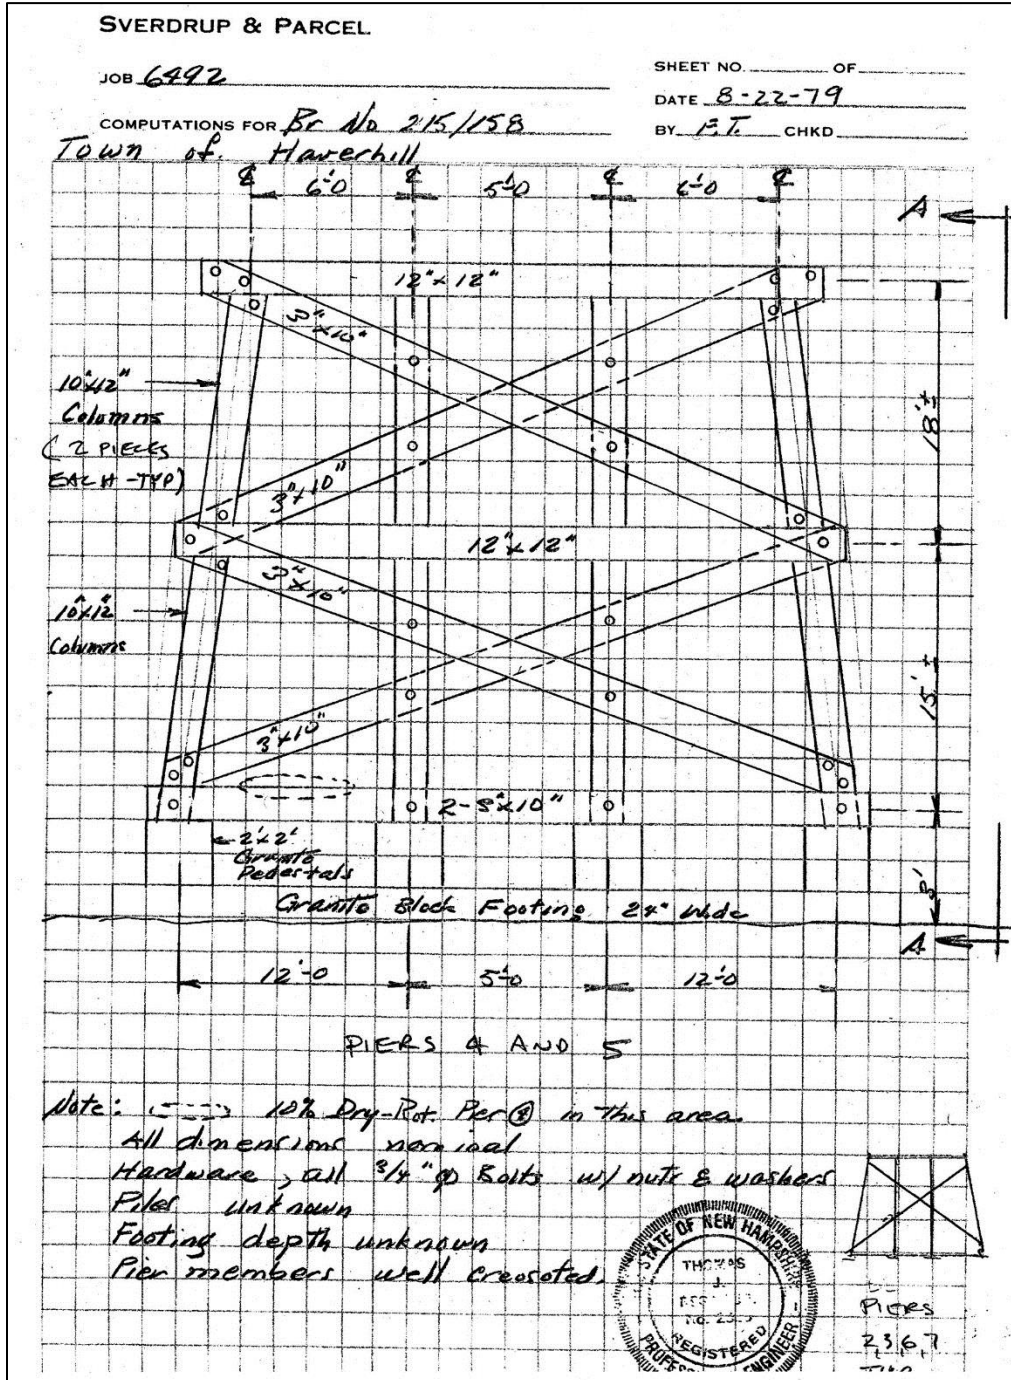 SVERDRUP & PARCEL
JOB 6492
SHEET NO. OF
DATE 8-22-79
COMPUTATIONS FOR Br No 215/158
BY F.T. CHKD
Town of Haverhill
℄ 6'-0 ℄ 5'-0 ℄ 6'-0 ℄
A
12" x 12"
3" x 10"
10"x12"
Columns
(2 PIECES
EACH - TYP)
18' ±
3" x 10"
12" x 12"
3" x 10"
10"x12"
Columns
15' ±
3" x 10"
2-8"x10"
2'x2'
Granite
Pedestals
3'
Granite Block Footing 24" Wide
A
12'-0 5'-0 12'-0
PIERS 4 AND 5
Note: 10% Dry-Rot Pier ④ in this area.
All dimensions nominal
Hardware, all 3/4" φ Bolts w/ nuts & washers
Piles unknown
Footing depth unknown
Pier members well creosoted.
STATE OF NEW HAMPSHIRE
THOMAS
J.
REGISTERED
PROFESSIONAL ENGINEER
Piers
2,3,6,7